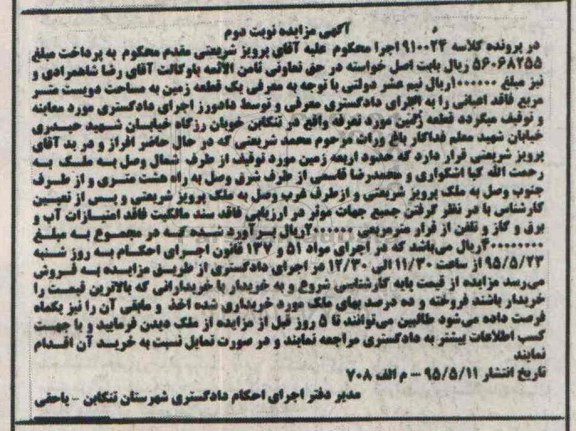 آگهی مزایده نوبت دوم
در پرونده کلاسه ۹۱۰۰۲۴ اجرا محکوم علیه آقای پرویز شریعتی مقدم محکوم به پرداخت مبلغ
۵۶۰۶۸۲۵۵ ریال بابت اصل خواسته در حق تعاونی ثامن الائمه باوکالت آقای رضا شاهمرادی و
نیز مبلغ ۱۰۰۰۰۰۰ ریال نیم عشر دولتی با توجه به معرفی یک قطعه زمین به مساحت دویست متر
مربع فاقد اعیانی را به اجرای دادگستری معرفی و توسط دادورز اجرای دادگستری مورد معاینه
و توقیف میگردد قطعه زمین مورد تعرفه واقع در تنکابن خوبان رزگاه خیابان شهید حیدری
خیابان شهید معلم فداکار باغ وراث مرحوم محمد شریعتی که در حال حاضر افراز و در ید آقای
پرویز شریعتی قرار دارد که حدود اربعه زمین مورد توقیف از طرف شمال وصل به ملک به
رحمت الله کیا اشکواری و محمدرضا قاسمی از طرف شرق وصل به راه هشت متری و از طرف
جنوب وصل به ملک پرویز شریعتی و ازطرف غرب وصل به ملک پرویز شریعتی و پس از تعیین
کارشناس با در نظر گرفتن جمیع جهات موثر در ارزیابی فاقد سند مالکیت فاقد امتیازات آب و
برق و گاز و تلفن از قرار مترمربعی ریال برآورد شده که در مجموع به مبلغ
ریال میباشد که در اجرای مواد ۵۱ و ۱۳۷ قانون اجرای احکام به روز شنبه
۹۵/۵/۲۳ از ساعت ۱۱/۳۰ الی ۱۲/۳۰ در اجرای دادگستری از طریق مزایده به فروش
می‌رسد مزایده از قیمت پایه کارشناسی شروع و به خریدار یا خریدارانی که بالاترین قیمت را
خریدار باشند فروخته و ده درصد بهای ملک مورد خریداری شده اخذ و مابقی آن را نیز یکماه
فرصت داده می‌شود طالبین می‌توانند تا ۵ روز قبل از مزایده از ملک دیدن فرمایید و یا جهت
کسب اطلاعات بیشتر به دادگستری مراجعه نمایند و در صورت تمایل نسبت به خرید آن اقدام
نمایند
تاریخ انتشار ۹۵/۵/۱۱ - م الف ۷۰۸
مدیر دفتر اجرای احکام دادگستری شهرستان تنکابن - یاحقی